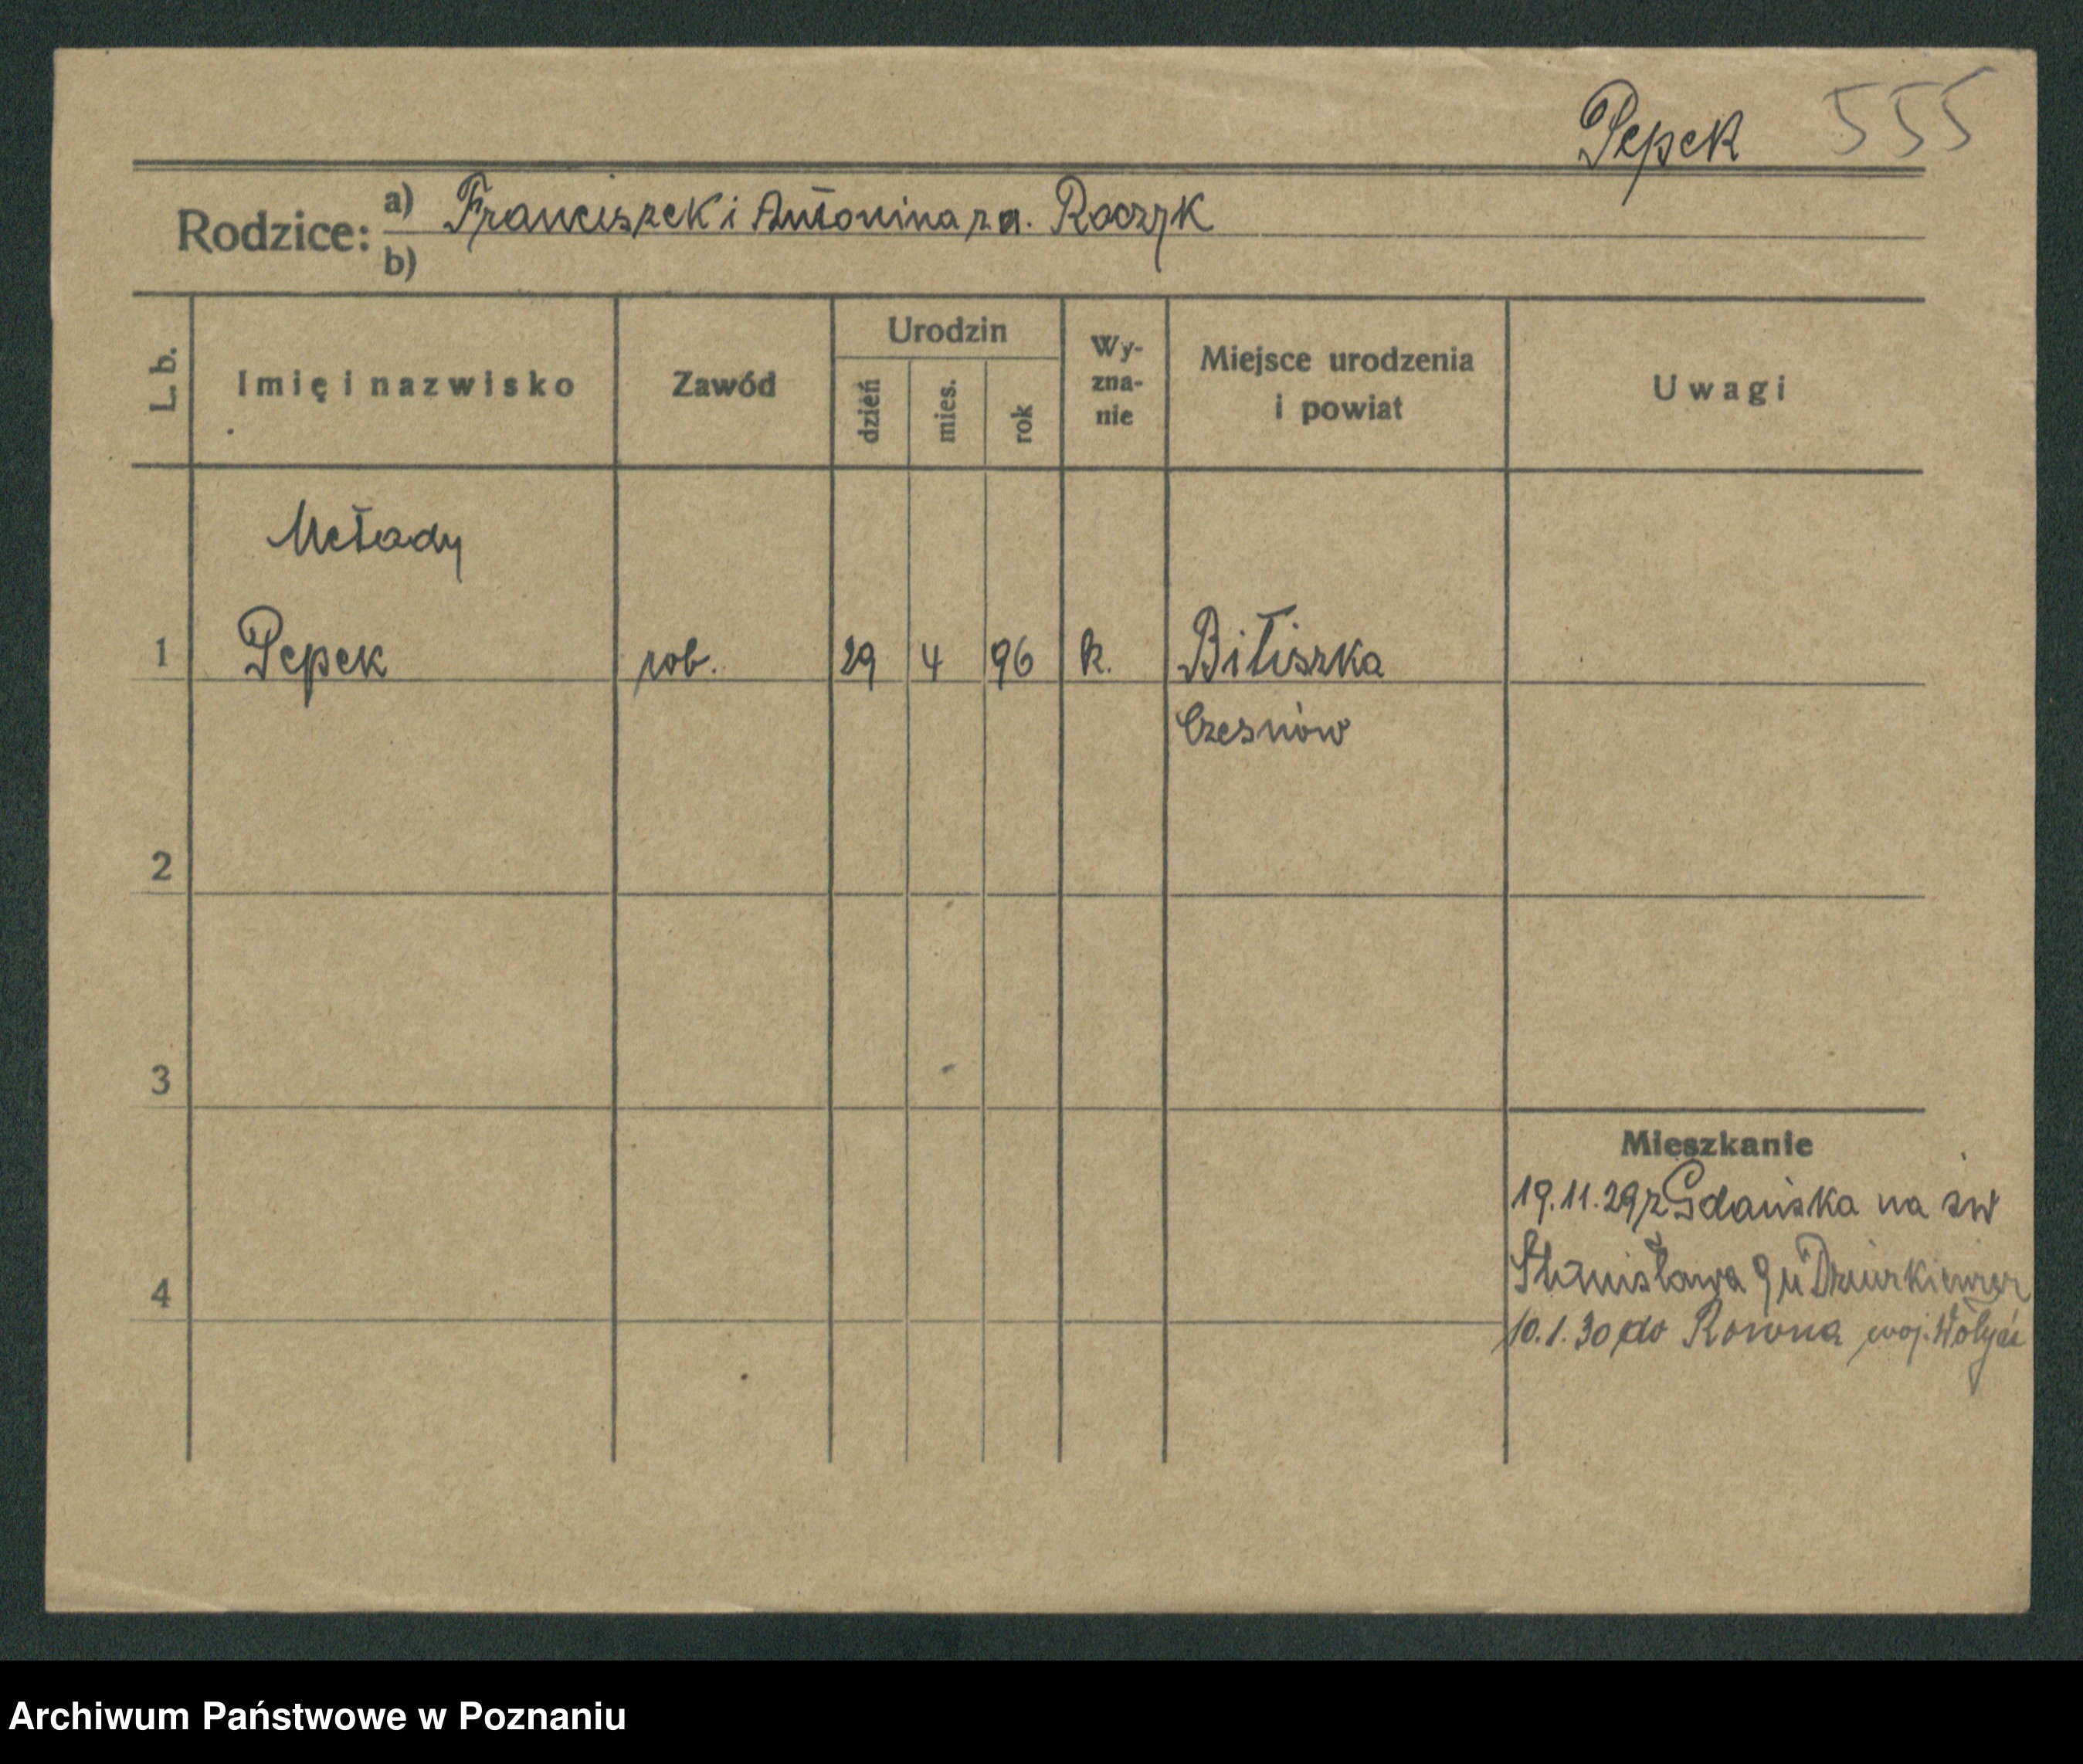 Pepek 555
Rodzice: a) Franciszek i Antonina z d.
b)
L. b. Imię i nazwisko Zawód Urodzin dzień mies. rok Wy-zna-nie Miejsce urodzenia i powiat Uwagi
Metady
1 Pepek rob. 29 4 96 k. Bitiszka
Czesnów
2
3
Mieszkanie
19.11.29 z Gdańska na św
4 Stanisława 9 u
10.1.30 do Rowna woj. Wołyń
Archiwum Państwowe w Poznaniu